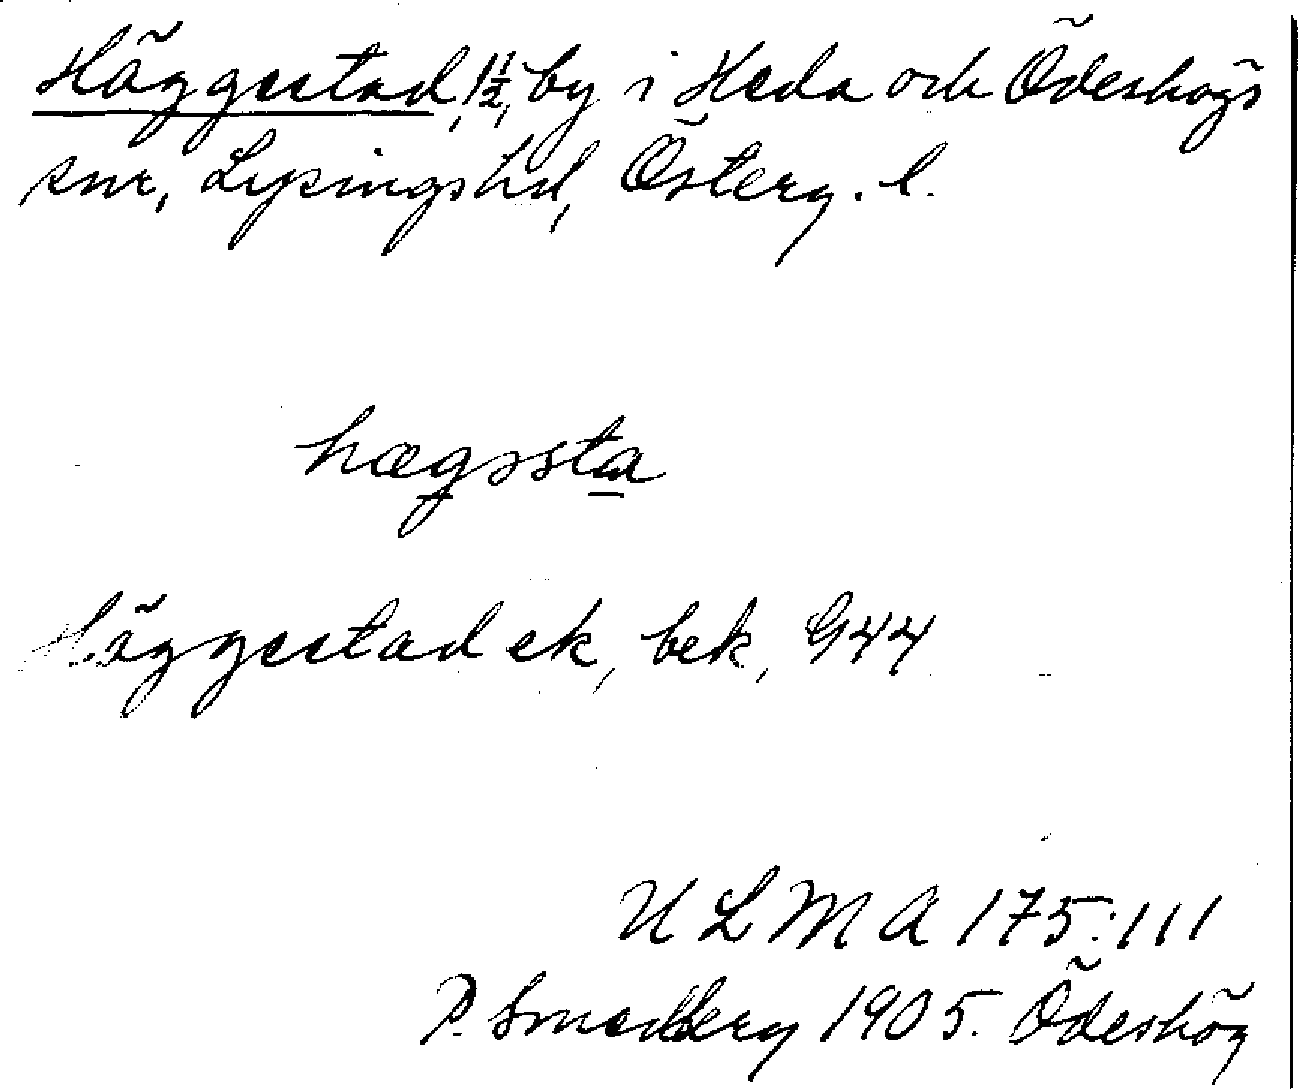 Häggestad, 1 1/2, by i Heda och Ödeshögs
snr, Lysings hd, Österg. l.
hægssta
Häggestad ek, bek, G44
ULMA 175:111
P. Smedberg 1905. Ödeshög